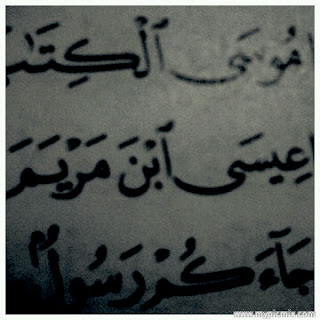 مُوسَى ٱلْكِتَٰبَ
عِيسَى ٱبْنَ مَرْيَمَ
جَآءَكُمْ رَسُولُۢ
www.mypicmix.com